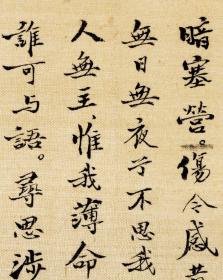 暗塞營。傷今感
無日無夜兮不思我
人無主。惟我薄命
誰可与語。尋思涉